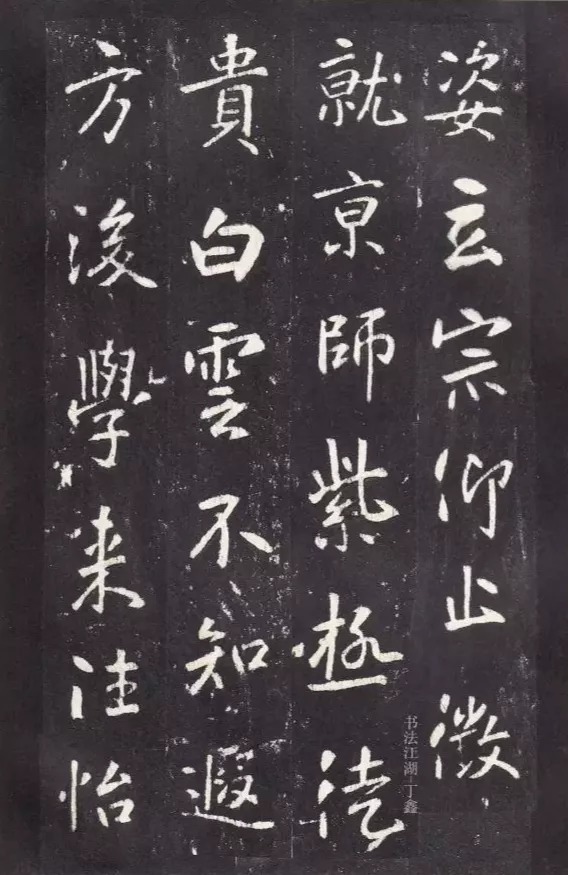 姿玄宗仰止徵
就京師紫極徒
貴白雲不知遐
方後學来往怡
书法江湖 丁鑫